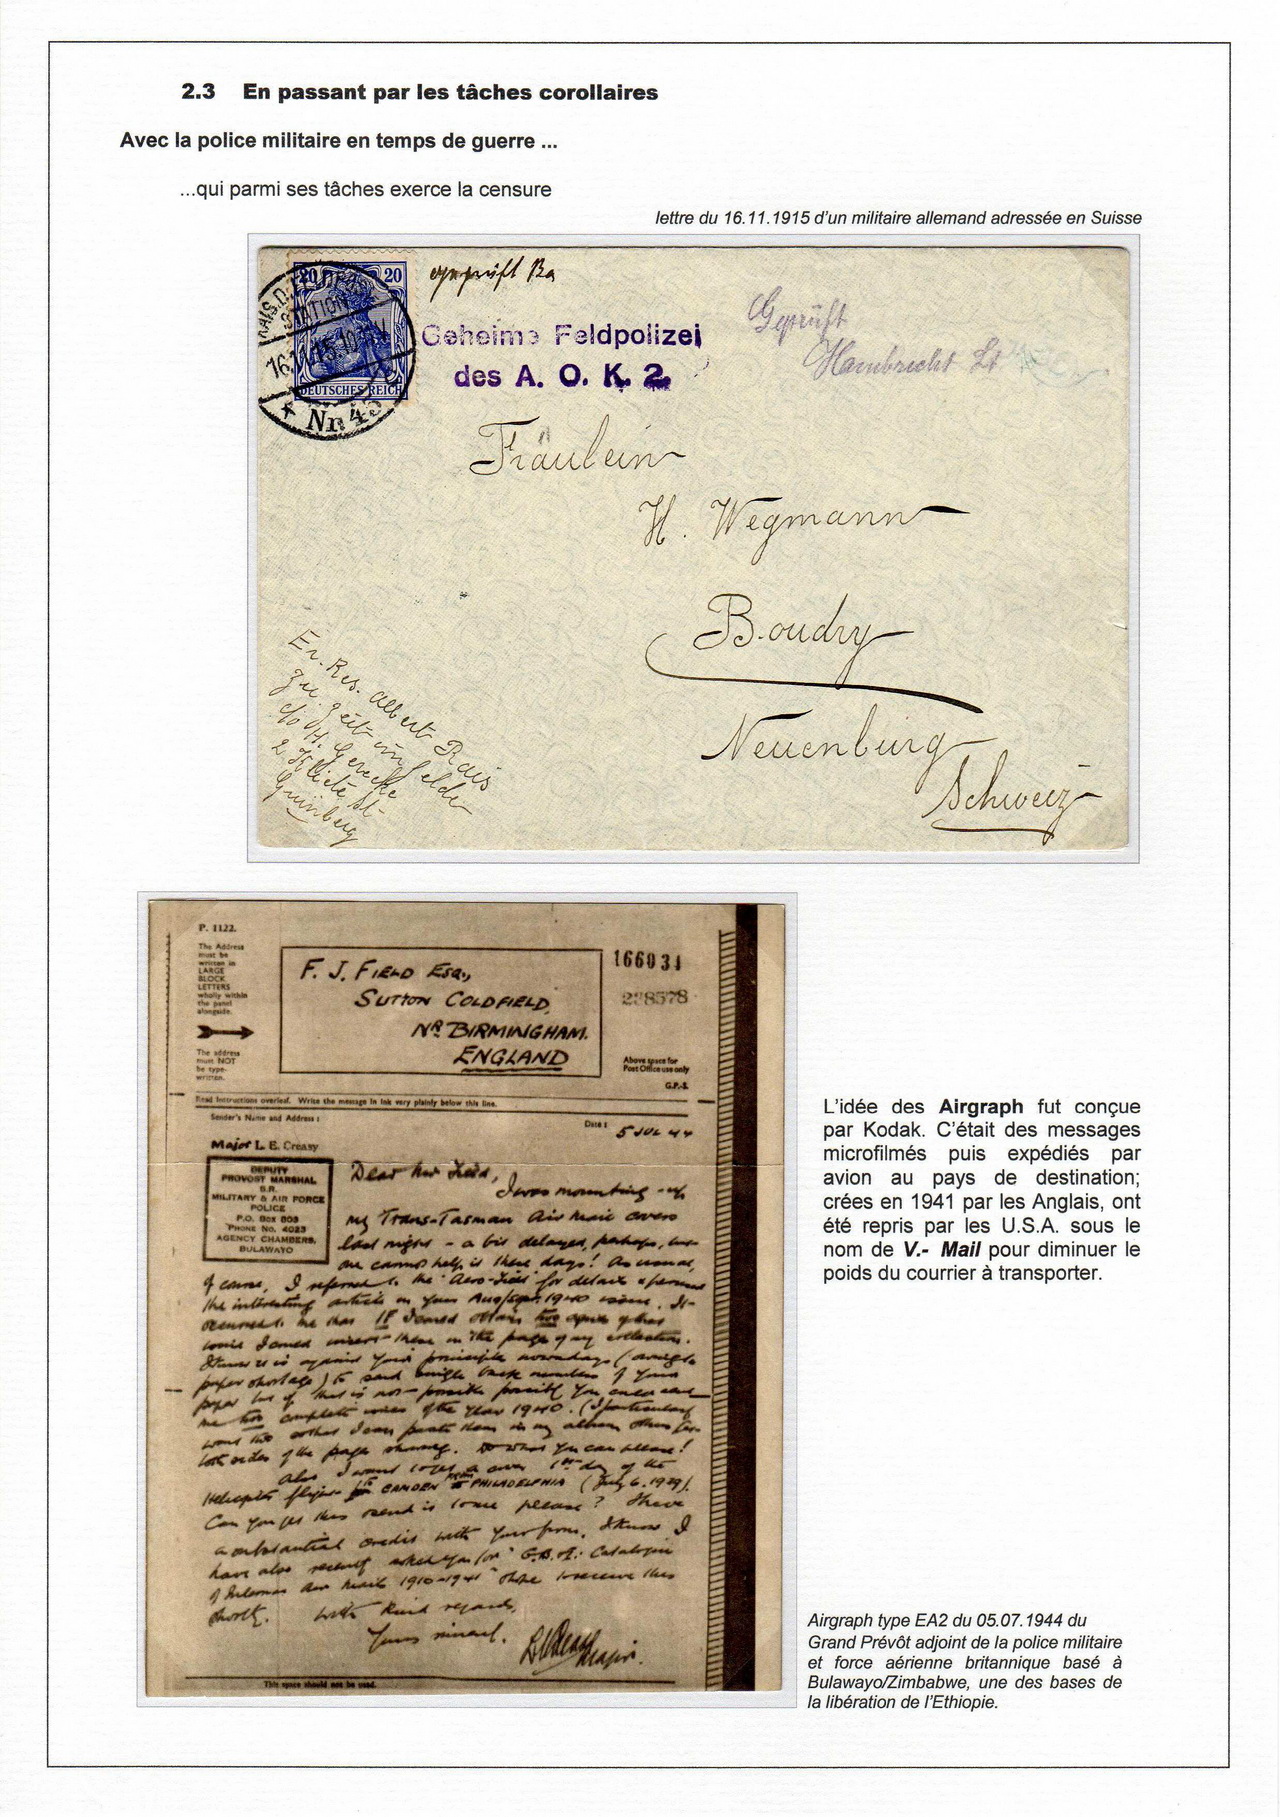 2.3 En passant par les tâches corollaires
Avec la police militaire en temps de guerre ...
...qui parmi ses tâches exerce la censure
lettre du 16.11.1915 d'un militaire allemand adressée en Suisse
20 20
DEUTSCHES REICH
16.11.15.10-11V
* Nr. 45
geprüft Ba
Geheime Feldpolizei
des A. O. K. 2.
Geprüft
Hambrecht Lt
Fräulein
H. Wegmann
Boudry
Neuenburg
Schweiz
Er. Res. Albert Rais
zu Zeit im Felde
c/o H. Gericke
Grünberg
P. 1122.
The Address
must be
written in
LARGE
BLOCK
LETTERS
wholly within
the panel
alongside.
The address
must NOT
be type-
written.
F. J. FIELD ESQ.,
SUTTON COLDFIELD,
NR BIRMINGHAM.
ENGLAND
166034
238578
Above space for
Post Office use only
G.P.-S.
Read Instructions overleaf. Write the message in ink very plainly below this line.
Sender's Name and Address :
Date :
5 JUL 44
Major L. E. Creasy
DEPUTY
PROVOST MARSHAL
S.R.
MILITARY & AIR FORCE
POLICE
P.O. BOX 803
'PHONE No. 4023
AGENCY CHAMBERS,
BULAWAYO
Dear Mr Field,
I was mounting up
my Trans-Tasman Air Mail covers
last night - a bit delayed, perhaps, but
one cannot help it these days! As usual,
of course, I referred to the "Aero-Field" for details & perused
the interesting article in your Aug/Sept 1940 issue. It
occurred to me that IF I could obtain two copies of this
issue I could insert these in the pages of my collection.
I know it is against your principle nowadays (owing to
paper shortage) to send single back numbers of your
paper but if this is not possible possibly you could send
me two complete issues of the year 1940. (I particularly
want two so that I can paste them in my album
both sides of the page showing. Do what you can please!
Also I want to get a cover 1st day of the
Helicopter flight CAMDEN to PHILADELPHIA (July 6. 1939).
Can you get this send it to me please? I have
a substantial credit with your firm. I know I
have also recently asked you for "G.B. & I. Catalogue
of Internal Air Mails 1910-1941" & hope to receive this
shortly. With kind regards,
Yours sincerely,
Major.
This space should not be used.
L'idée des Airgraph fut conçue
par Kodak. C'était des messages
microfilmés puis expédiés par
avion au pays de destination;
crées en 1941 par les Anglais, ont
été repris par les U.S.A. sous le
nom de V.- Mail pour diminuer le
poids du courrier à transporter.
Airgraph type EA2 du 05.07.1944 du
Grand Prévôt adjoint de la police militaire
et force aérienne britannique basé à
Bulawayo/Zimbabwe, une des bases de
la libération de l'Ethiopie.